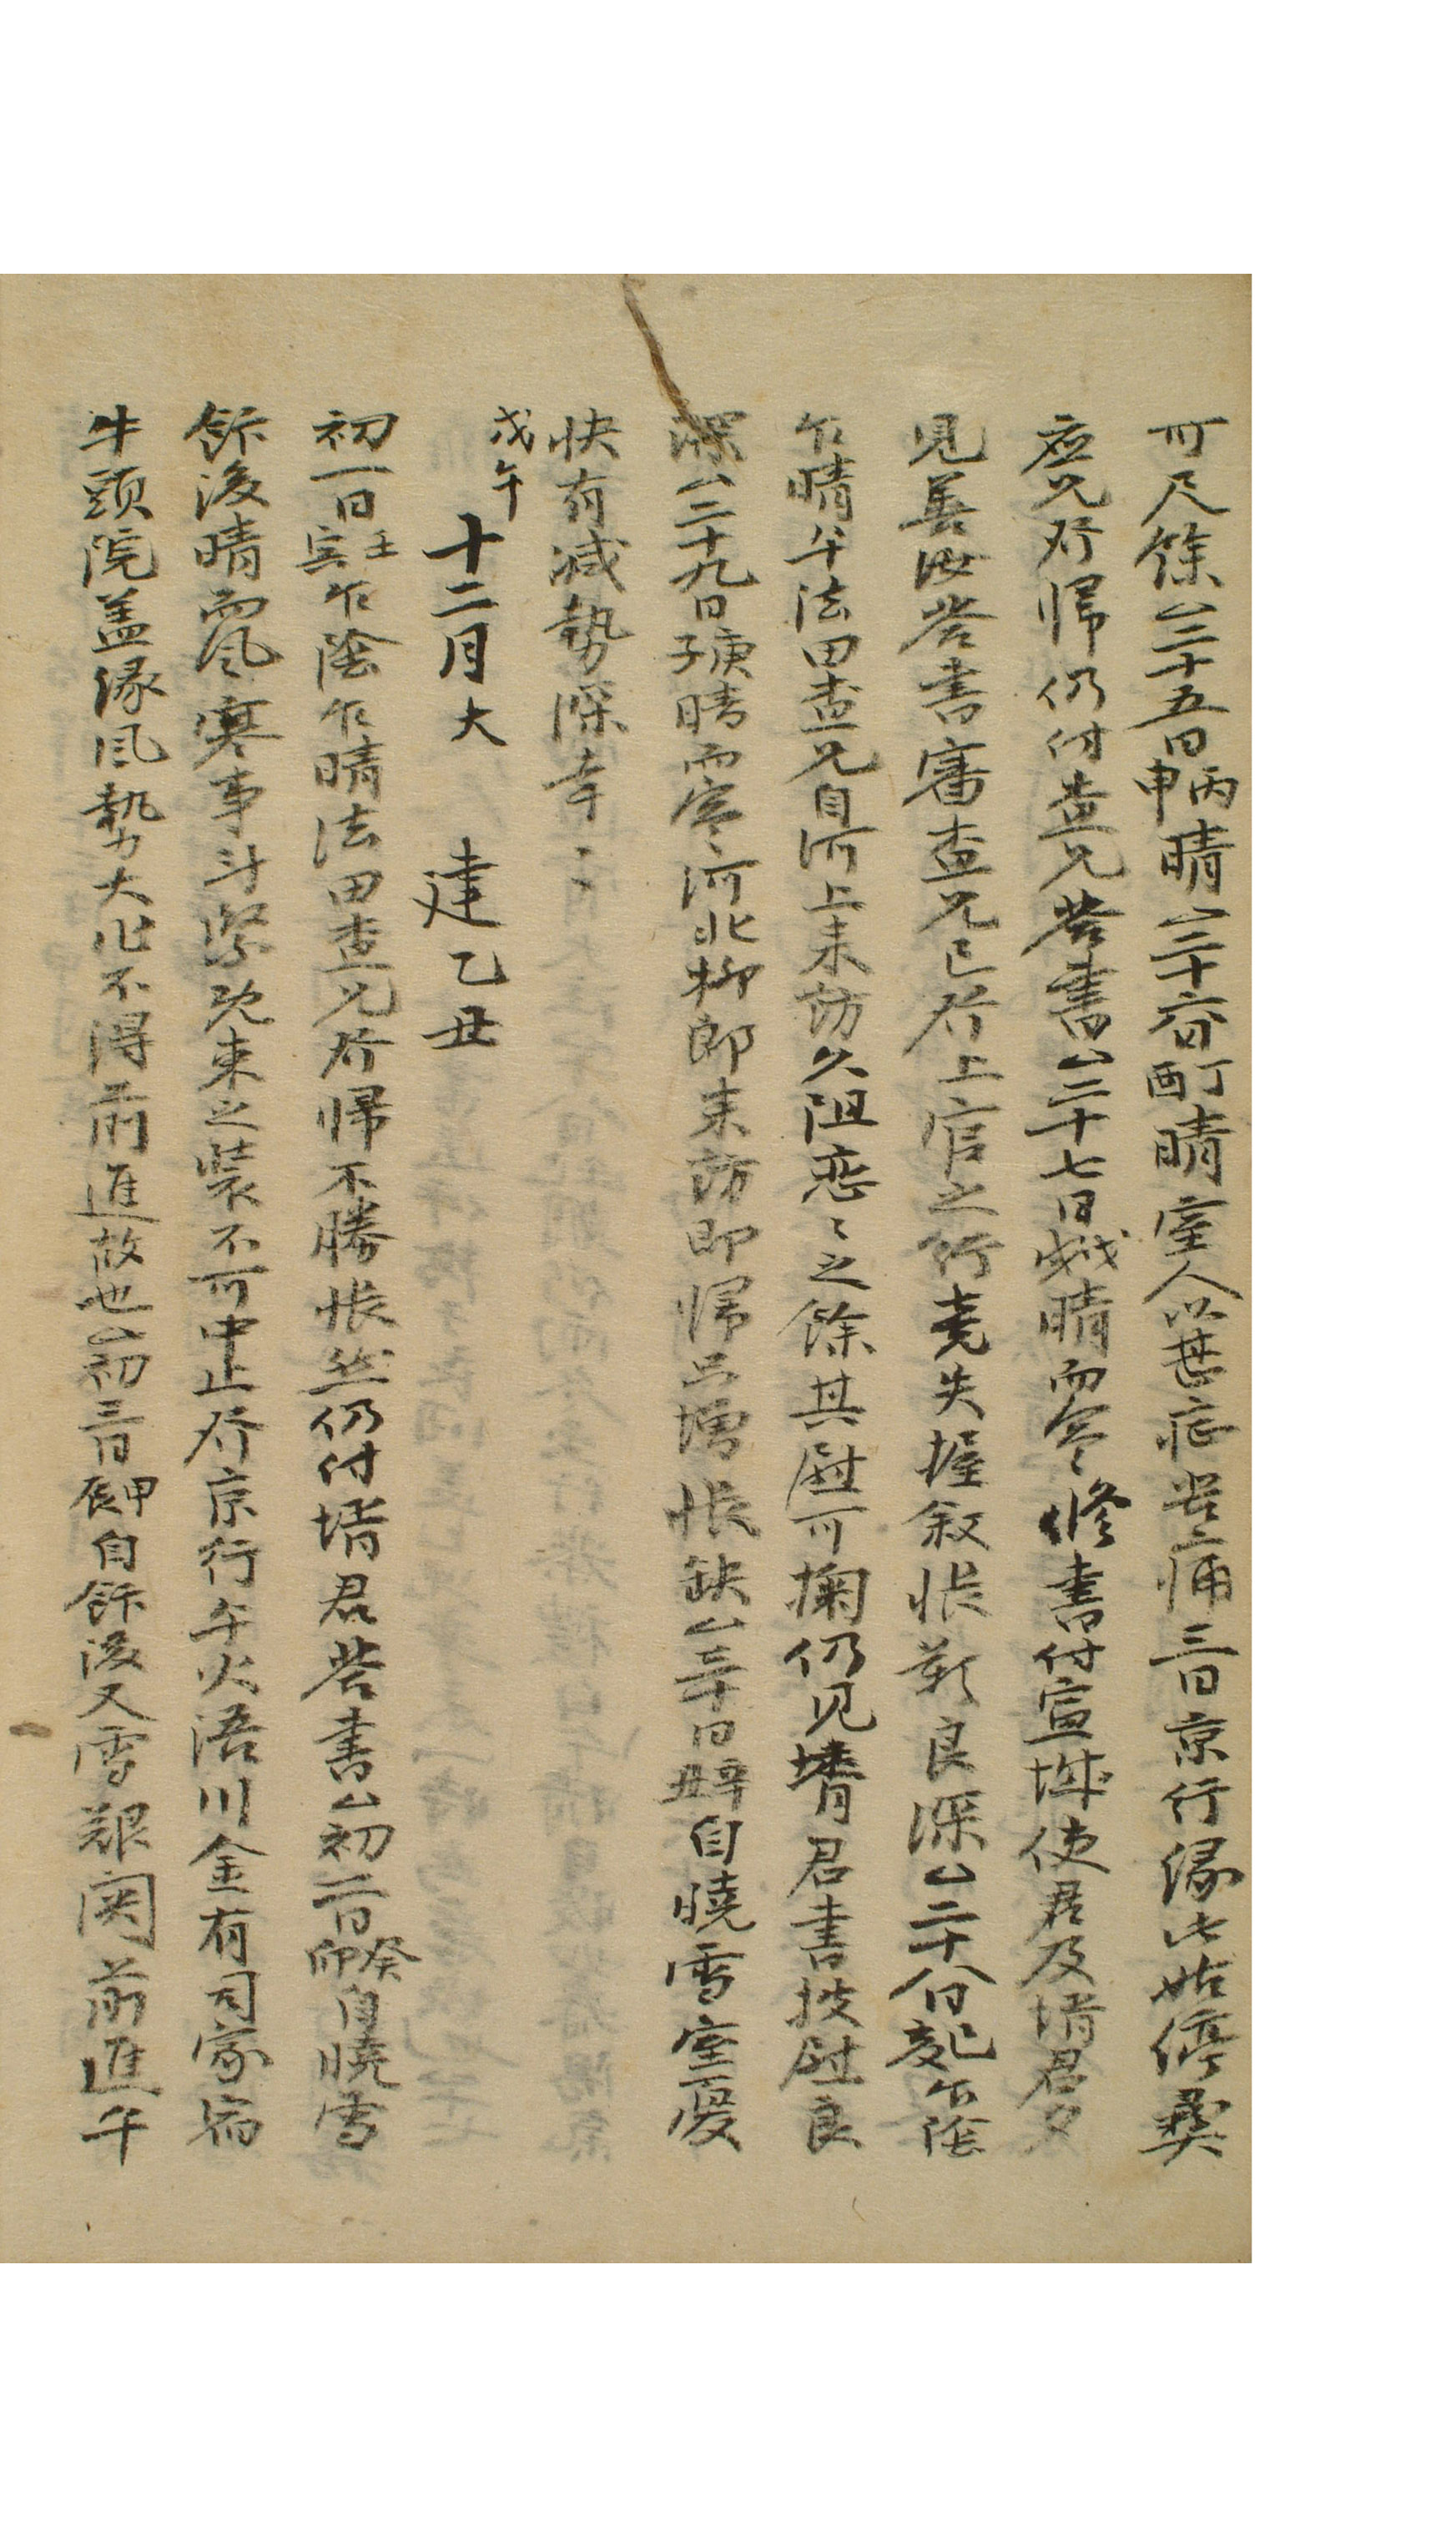 可尺餘△二十五日丙申晴△二十六日丁酉晴室人以甚症苦痛三日京行緣此姑停彛
應兄發歸仍付査兄答書△二十七日戊戌晴而寒修書付宣城使君及壻君夕
見善汝答書審査兄已發上官之行竟失握敍悵歎良深△二十八日己亥乍陰
乍晴午法田査兄自河上來訪久阻戀〻之餘其慰可掬仍見壻君書披慰良
深△二十九日庚子晴而寒河北柳郎來訪卽歸只增悵缺△三十日辛丑自曉雪室憂
快有減勢深幸〻
戊午十二月大 建乙丑
初一日壬寅乍陰乍晴法田査兄發歸不勝悵然仍付壻君答書△初二日癸卯自曉雪
飯後晴而風寒事斗緊旣束之裝不可中止發京行午火浯川金有司家宿
牛頭院盖緣風勢大作不得前進故也△初三日甲辰自飯後又雪艱關前進午